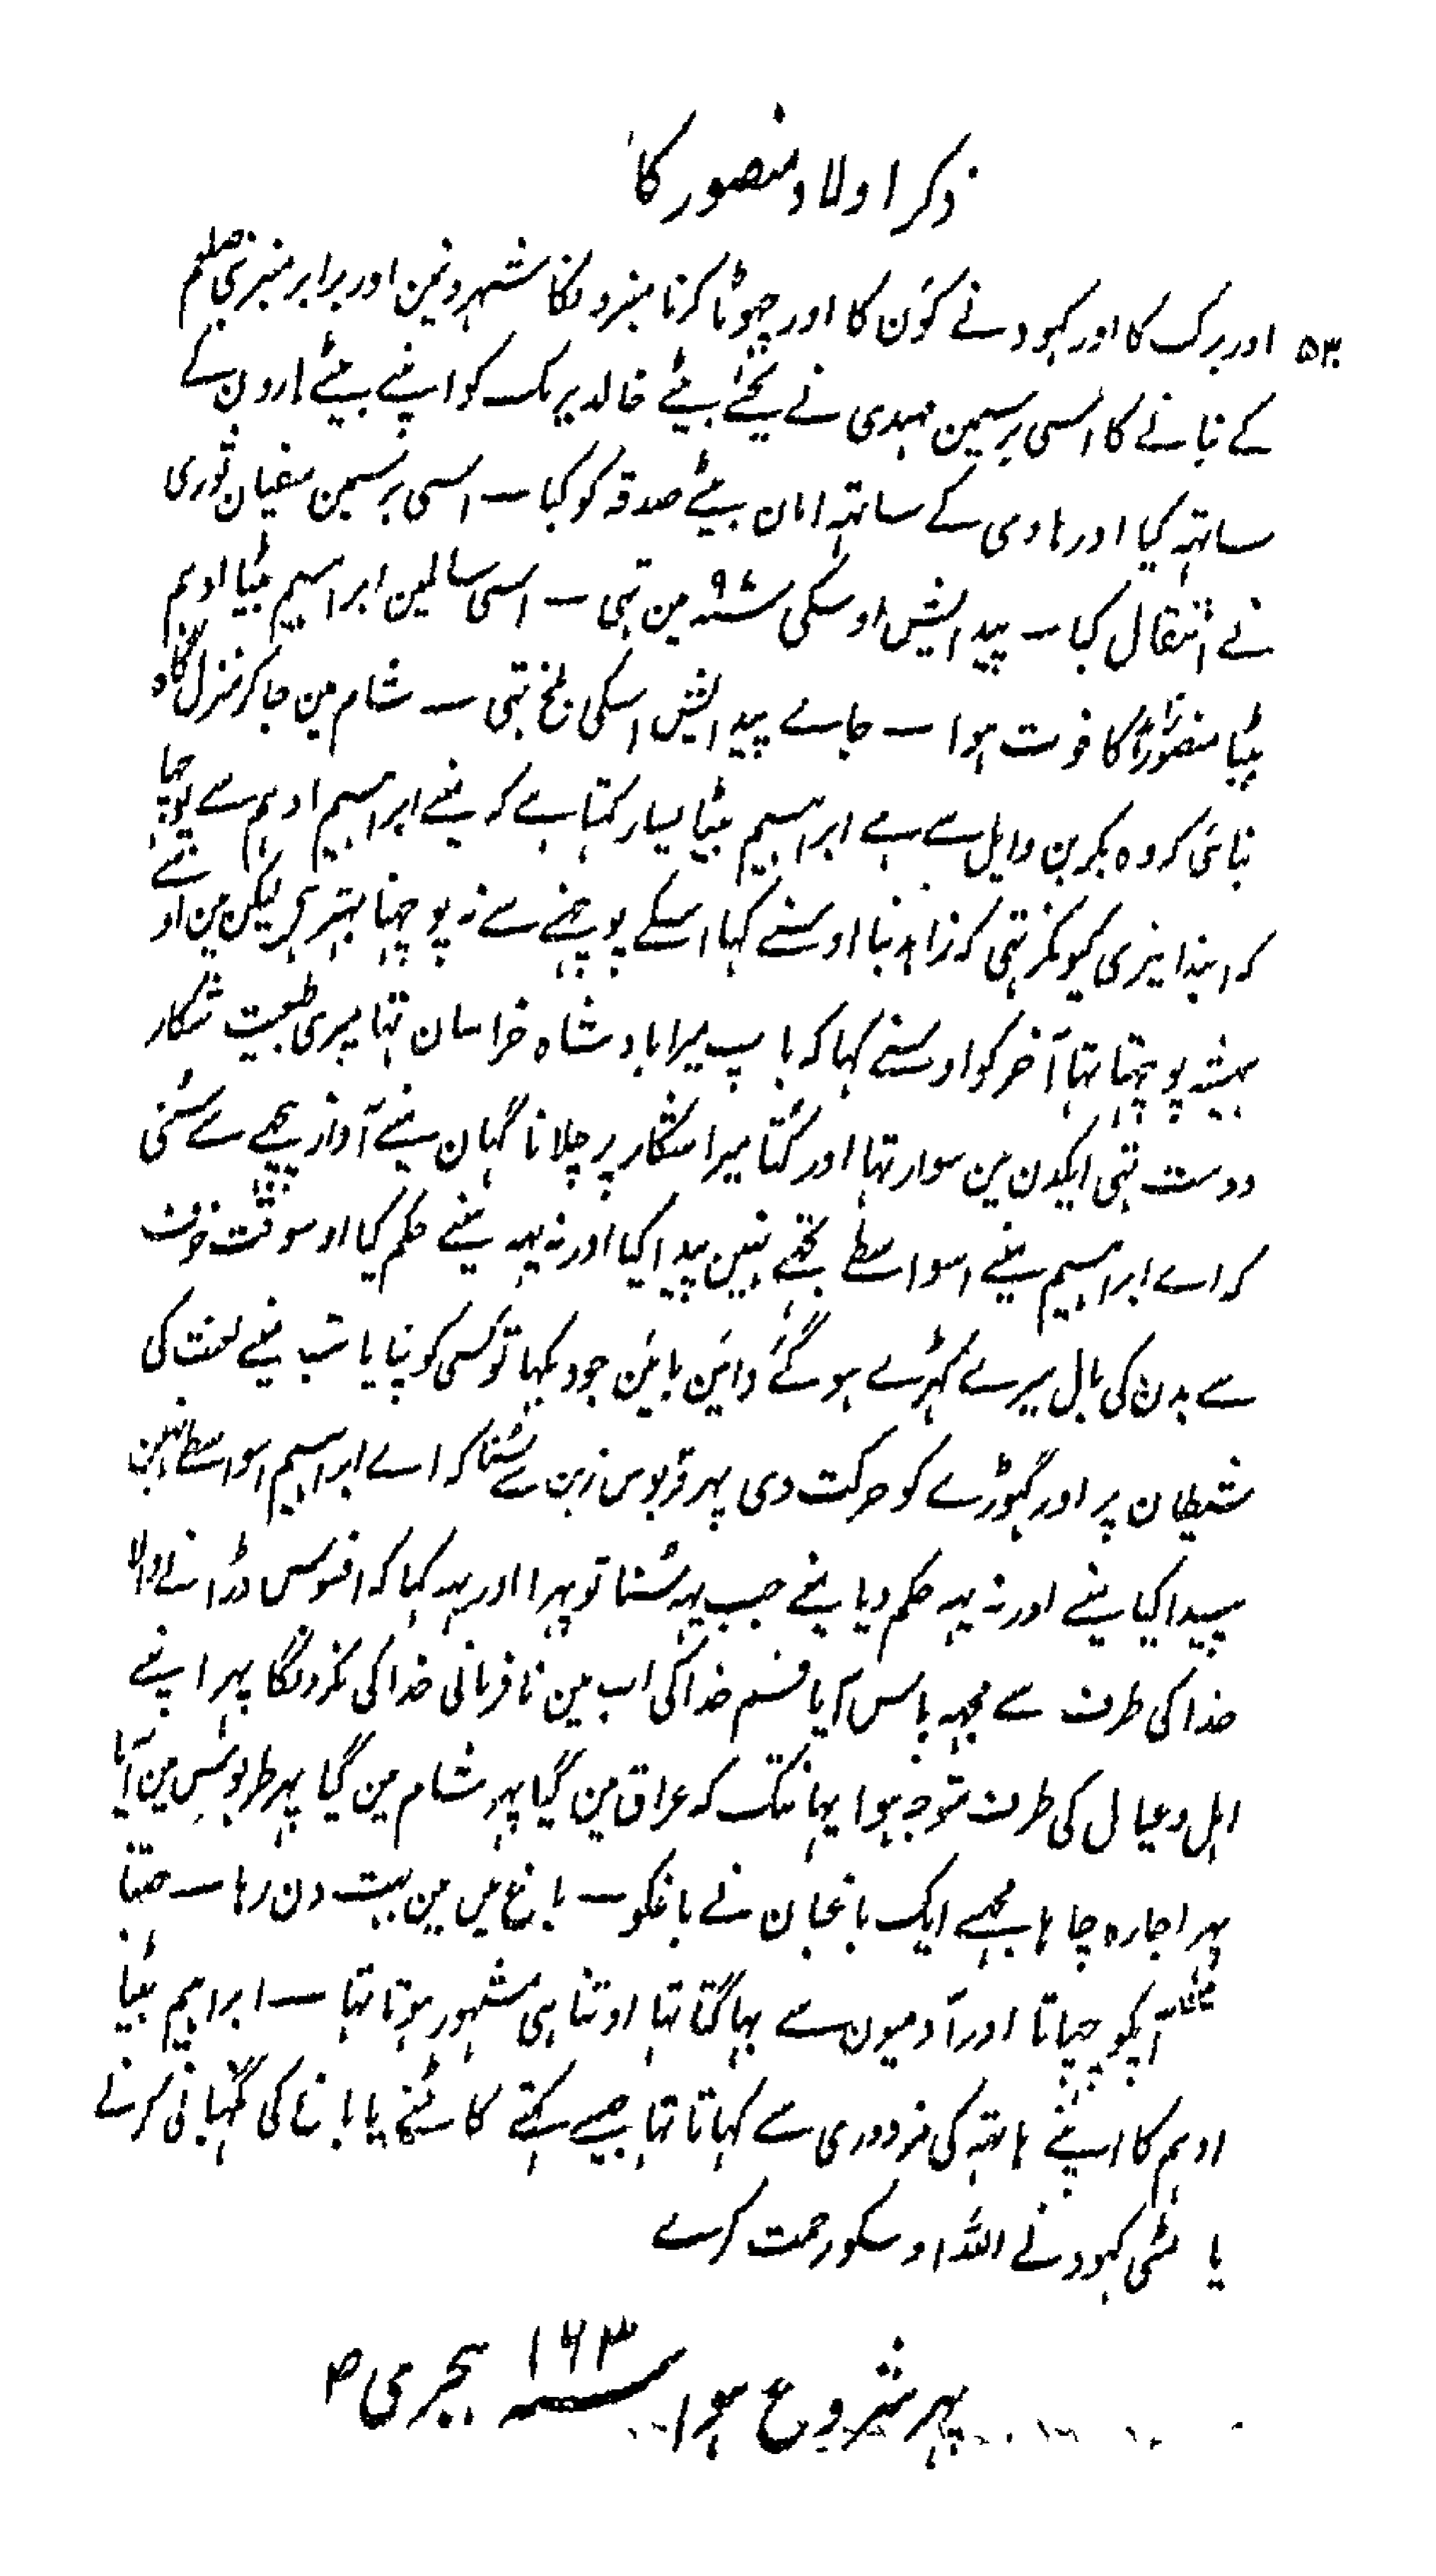 ذکر اولاد منصور کا
۵۳ اور برک کا اور کہودنے کوَن کا اور چہوٹا کرنا منبرونکا شہرونمین اور برابر منبر نبی صلعم
کے بنانے کا اسی برسمین مہدی نے یحیٰے بیٹے خالد برمک کو اپنے بیٹے ہارون کے
ساتہہ کیا اور ہادی کے ساتہہ ابان بیٹے صدقہ کو کیا ـــ اسی برسمین سفیان ثوری
نے انتقال کیا ـــ پیدایش اوسکی سنہ ۹۷ مین تہی ـــ اسی سالمین ابراہیم بیٹا ادہم
بیٹا منصور کا فوت ہوا ـــ جاے پیدایش اسکی بلخ تہی ـــ شام مین جا کر منزل گاہ
بنائی کہ وہ بکر بن وایل سے ہے ابراہیم بیٹا یسار کہتا ہے کہ مینے ابراہیم ادہم سے پوچہا
کہ ابتدا تیری کیونکر تہی کہ زاہد بنا اوسنے کہا اسکے پوچہنے سے نہ پوچہنا بہتر ہی لیکن مین اوسے
ہمیشہ پوچہتا تہا آخر کو اوسنے کہا کہ باپ میرا بادشاہ خراسان تہا میری طبیعت شکار
دوست تہی ایکدن مین سوار تہا اور کُتا میرا شکار پر چلا ناگہان مینے آواز پیچہے سے سُنی
کہ اے ابراہیم مینے اسواسطے تجہے نہین پیدا کیا اور نہ یہہ مینے حکم کیا اوسوقت خوف
سے بدن کی بال میرے کہڑے ہو گئے دائین بائین جو دیکہا تو کسی کو نپایا تب مینے لعنت کی
شیطان پر اور گہوڑے کو حرکت دی پہر قربوس زین سے سُنا کہ اے ابراہیم اسواسطے نہین
پیدا کیا مینے اور نہ یہہ حکم دیا مینے جب یہہ سُنا تو پہرا اور یہہ کہا کہ افسوس ڈرانے والا
خدا کی طرف سے مجہہ پاس آیا قسم خدا کی اب مین نافرمانی خدا کی نکرونگا پہر اپنے
اہل و عیال کی طرف متوجہ ہوا یہانتک کہ عراق مین گیا پہر شام مین گیا پہر طرسوس مین آیا
پہر اجارہ چاہا مجہسے ایک باغبان نے باغکو ـــ باغ میں مین بہت دن رہا ـــ جتنا
آپکو چہپاتا اور آدمیون سے بہاگتا تہا اوتنا ہی مشہور ہوتا تہا ـــ ابراہیم بیٹا
ادہم کا اپنے ہاتہہ کی مزدوری سے کہاتا تہا جیسے کہتے کاٹنے یا باغ کی نگہبانی کرنے
یا مٹی کہودنے اللہ اوسکو رحمت کرے
پہر شروع ہوا سنہ ۱۶۳ ہجری